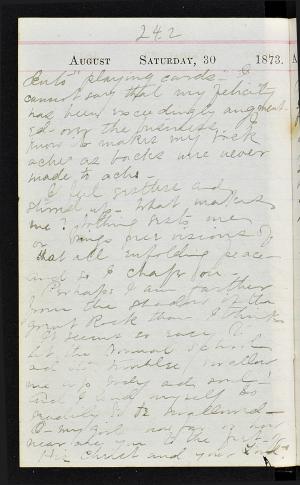 242
August Saturday, 30 1873.
Cuts" playing cards - I
cannot say that my felicity
has been exceedingly augment
ed over the business. I
know it makes my back
ache as backs were never
made to ache.
I feel restless and
stirred up - What makes
me? nothing rests me
or brings pure visions of
that all enfolding peace
and so I chafe on.
Perhaps I am farther
from the shadow of the
great Rock than I think
It seems so easy to
let the Normal School
and its troubles swallow
me up body and soul -
and I lend myself so
readily to be swallowed -
O - my girl how far or how
near are you to the feet of
His Christ and your Lord?